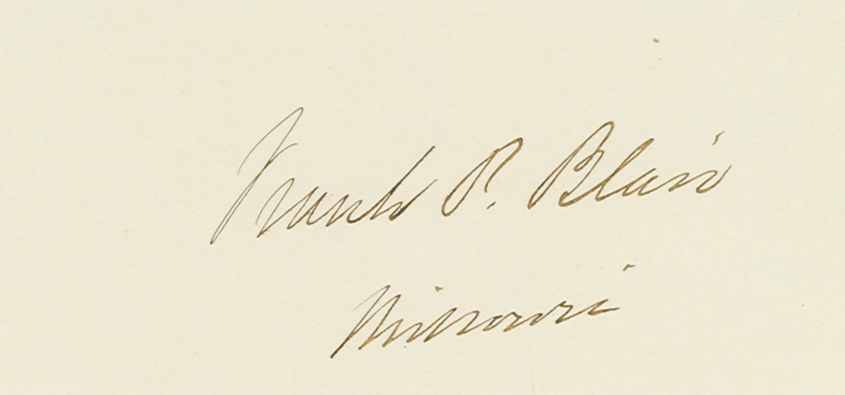 Frank P. Blair
Missouri